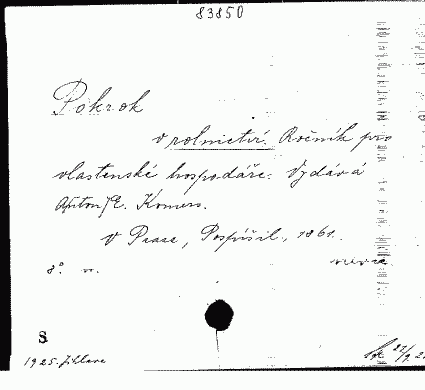 83850
Pokrok
v rolnictví. Ročník pro
vlastenské hospodáře. Vydává
Anton E. Komers.
V Praze, Pospíšil, 1861.
8°.
S
1925. Jihlava